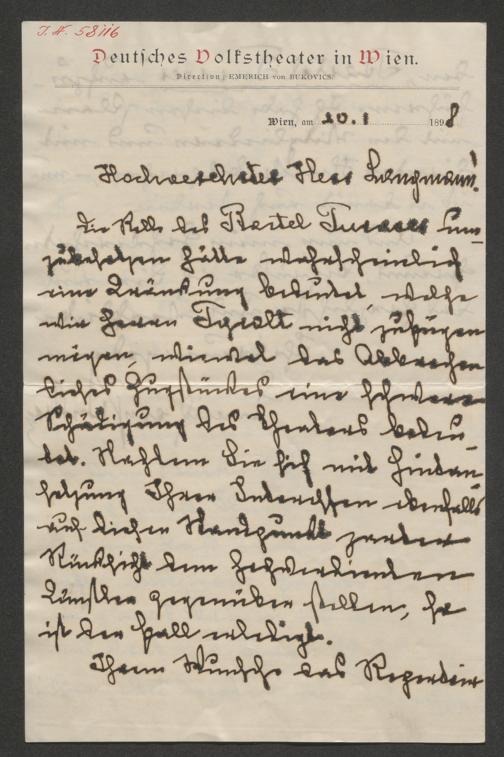 J. N. 58116
Deutsches Volkstheater in Wien.
Direction: EMERICH von BUKOVICS.
Wien, am 20. I 1898
Hochverehrter Herr Langmann!
Die Rolle des Bartel Turaser um-
zubesetzen hätte wahrscheinlich
eine Kränkung bedeutet, welche
wir Herrn Tyrolt nicht zufügen
mögen, wiewol das Abbrechen
dieses Zugstückes eine schwere
Schädigung des Theaters bedeu-
tet. Nachdem Sie sich mit Hintan-
setzung Ihrer Interessen ebenfalls
auf diesen Standpunkt zarter
Rücksicht dem hochverdienten
Künstler gegenüber stellen, so
ist der Fall erledigt.
Ihrem Wunsche das Repertoir